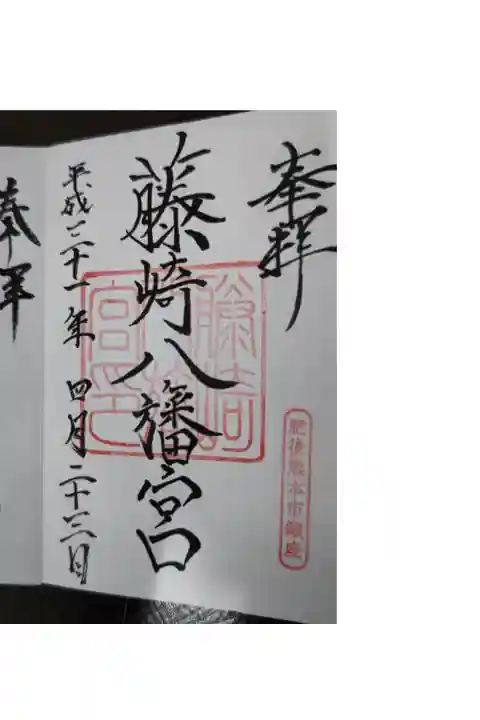 奉拝
肥後熊本市鎮座
藤崎八旛宮
藤崎八旛宮印
平成三十一年 四月二十三日
奉拝